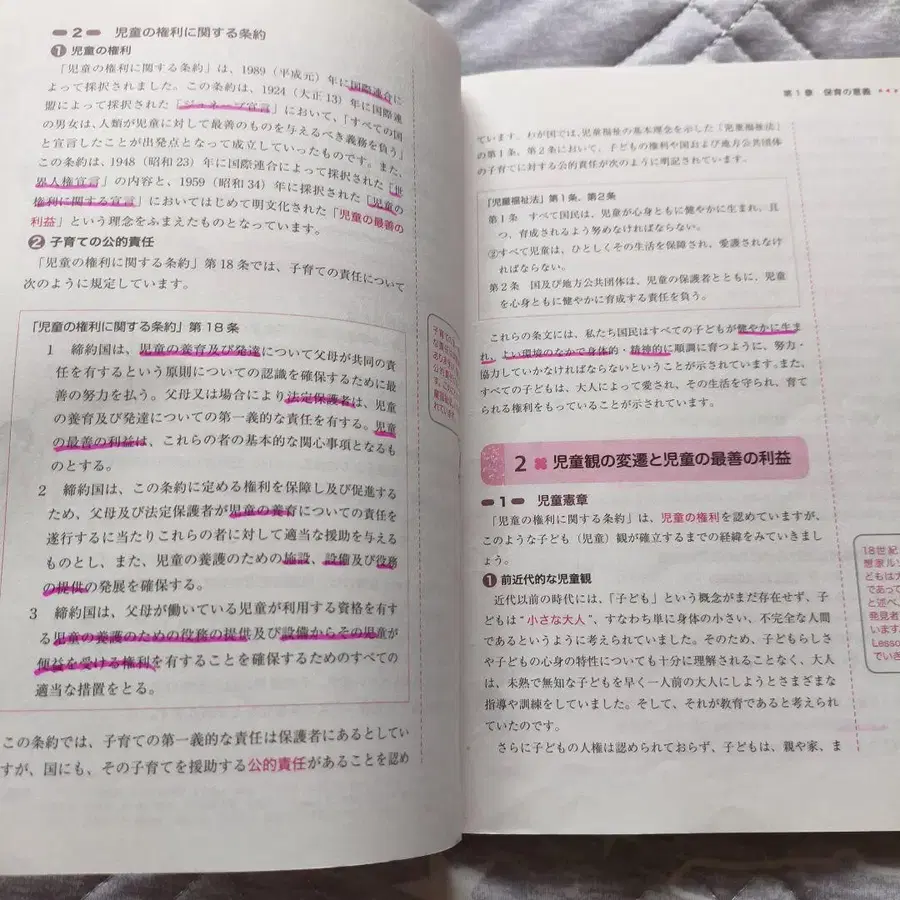 2 児童の権利に関する条約
❶ 児童の権利
「児童の権利に関する条約」は、1989（平成元）年に国際連合に
よって採択されました。この条約は、1924（大正13）年に国際連
盟によって採択された「ジュネーブ宣言」において、「すべての国
の男女は、人類が児童に対して最善のものを与えるべき義務を負う」
と宣言したことが出発点となって成立していったものです。また、
この条約は、1948（昭和23）年に国際連合によって採択された「世
界人権宣言」の内容と、1959（昭和34）年に採択された「児童の
権利に関する宣言」においてはじめて明文化された「児童の最善の
利益」という理念をふまえたものとなっています。
❷ 子育ての公的責任
「児童の権利に関する条約」第18条では、子育ての責任について
次のように規定しています。
「児童の権利に関する条約」第18条
1 締約国は、児童の養育及び発達について父母が共同の責
任を有するという原則についての認識を確保するために最
善の努力を払う。父母又は場合により法定保護者は、児童
の養育及び発達についての第一義的な責任を有する。児童
の最善の利益は、これらの者の基本的な関心事項となるも
のとする。
2 締約国は、この条約に定める権利を保障し及び促進する
ため、父母及び法定保護者が児童の養育についての責任を
遂行するに当たりこれらの者に対して適当な援助を与える
ものとし、また、児童の養護のための施設、設備及び役務
の提供の発展を確保する。
3 締約国は、父母が働いている児童が利用する資格を有す
る児童の養護のための役務の提供及び設備からその児童が
便益を受ける権利を有することを確保するためのすべての
適当な措置をとる。
この条約では、子育ての第一義的な責任は保護者にあるとしてい
すが、国にも、その子育てを援助する公的責任があることを認め
子育て
第1章 保育の意義
ています。わが国では、児童福祉の基本理念を示した「児童福祉法」
の第1条、第2条において、子どもの権利や国および地方公共団体
の子育てに対する公的責任が次のように明記されています。
「児童福祉法」第1条、第2条
第1条 すべて国民は、児童が心身ともに健やかに生まれ、且
つ、育成されるよう努めなければならない。
②すべて児童は、ひとしくその生活を保障され、愛護されなけ
ればならない。
第2条 国及び地方公共団体は、児童の保護者とともに、児童
を心身ともに健やかに育成する責任を負う。
これらの条文には、私たち国民はすべての子どもが健やかに生ま
れ、よい環境のなかで身体的・精神的に順調に育つように、努力・
協力していかなければならないということが示されています。また、
すべての子どもは、大人によって愛され、その生活を守られ、育て
られる権利をもっていることが示されています。
2 児童観の変遷と児童の最善の利益
1 児童憲章
「児童の権利に関する条約」は、児童の権利を認めていますが、
このような子ども（児童）観が確立するまでの経緯をみていきまし
ょう。
❶ 前近代的な児童観
近代以前の時代には、「子ども」という概念がまだ存在せず、子
どもは“小さな大人”、すなわち単に身体の小さい、不完全な人間
であるというように考えられていました。そのため、子どもらしさ
や子どもの心身の特性についても十分に理解されることなく、大人
は、未熟で無知な子どもを早く一人前の大人にしようとさまざまな
指導や訓練をしていました。そして、それが教育であると考えられ
ていたのです。
さらに子どもの人権は認められておらず、子どもは、親や家、ま
18世紀
想家ルソ
どもは大
であって
と述べ、
発見者
います。
Lesson
でいき